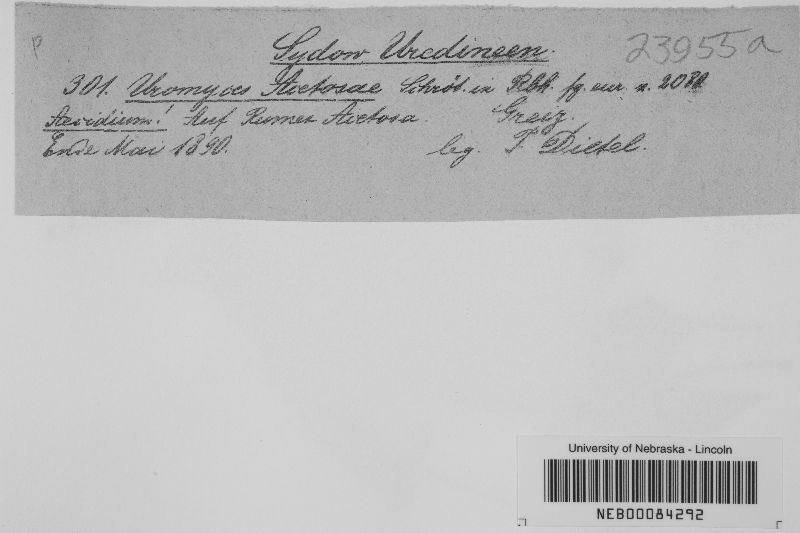 Sydow Uredineen. 23955a
p
301. Uromyces Acetosae Schröt. in Rbh. fg. eur. n. 2080
Aecidium! Auf Rumex Acetosa. Greiz.
Ende Mai 1890. leg. P. Dietel.
University of Nebraska - Lincoln
NEB00084292